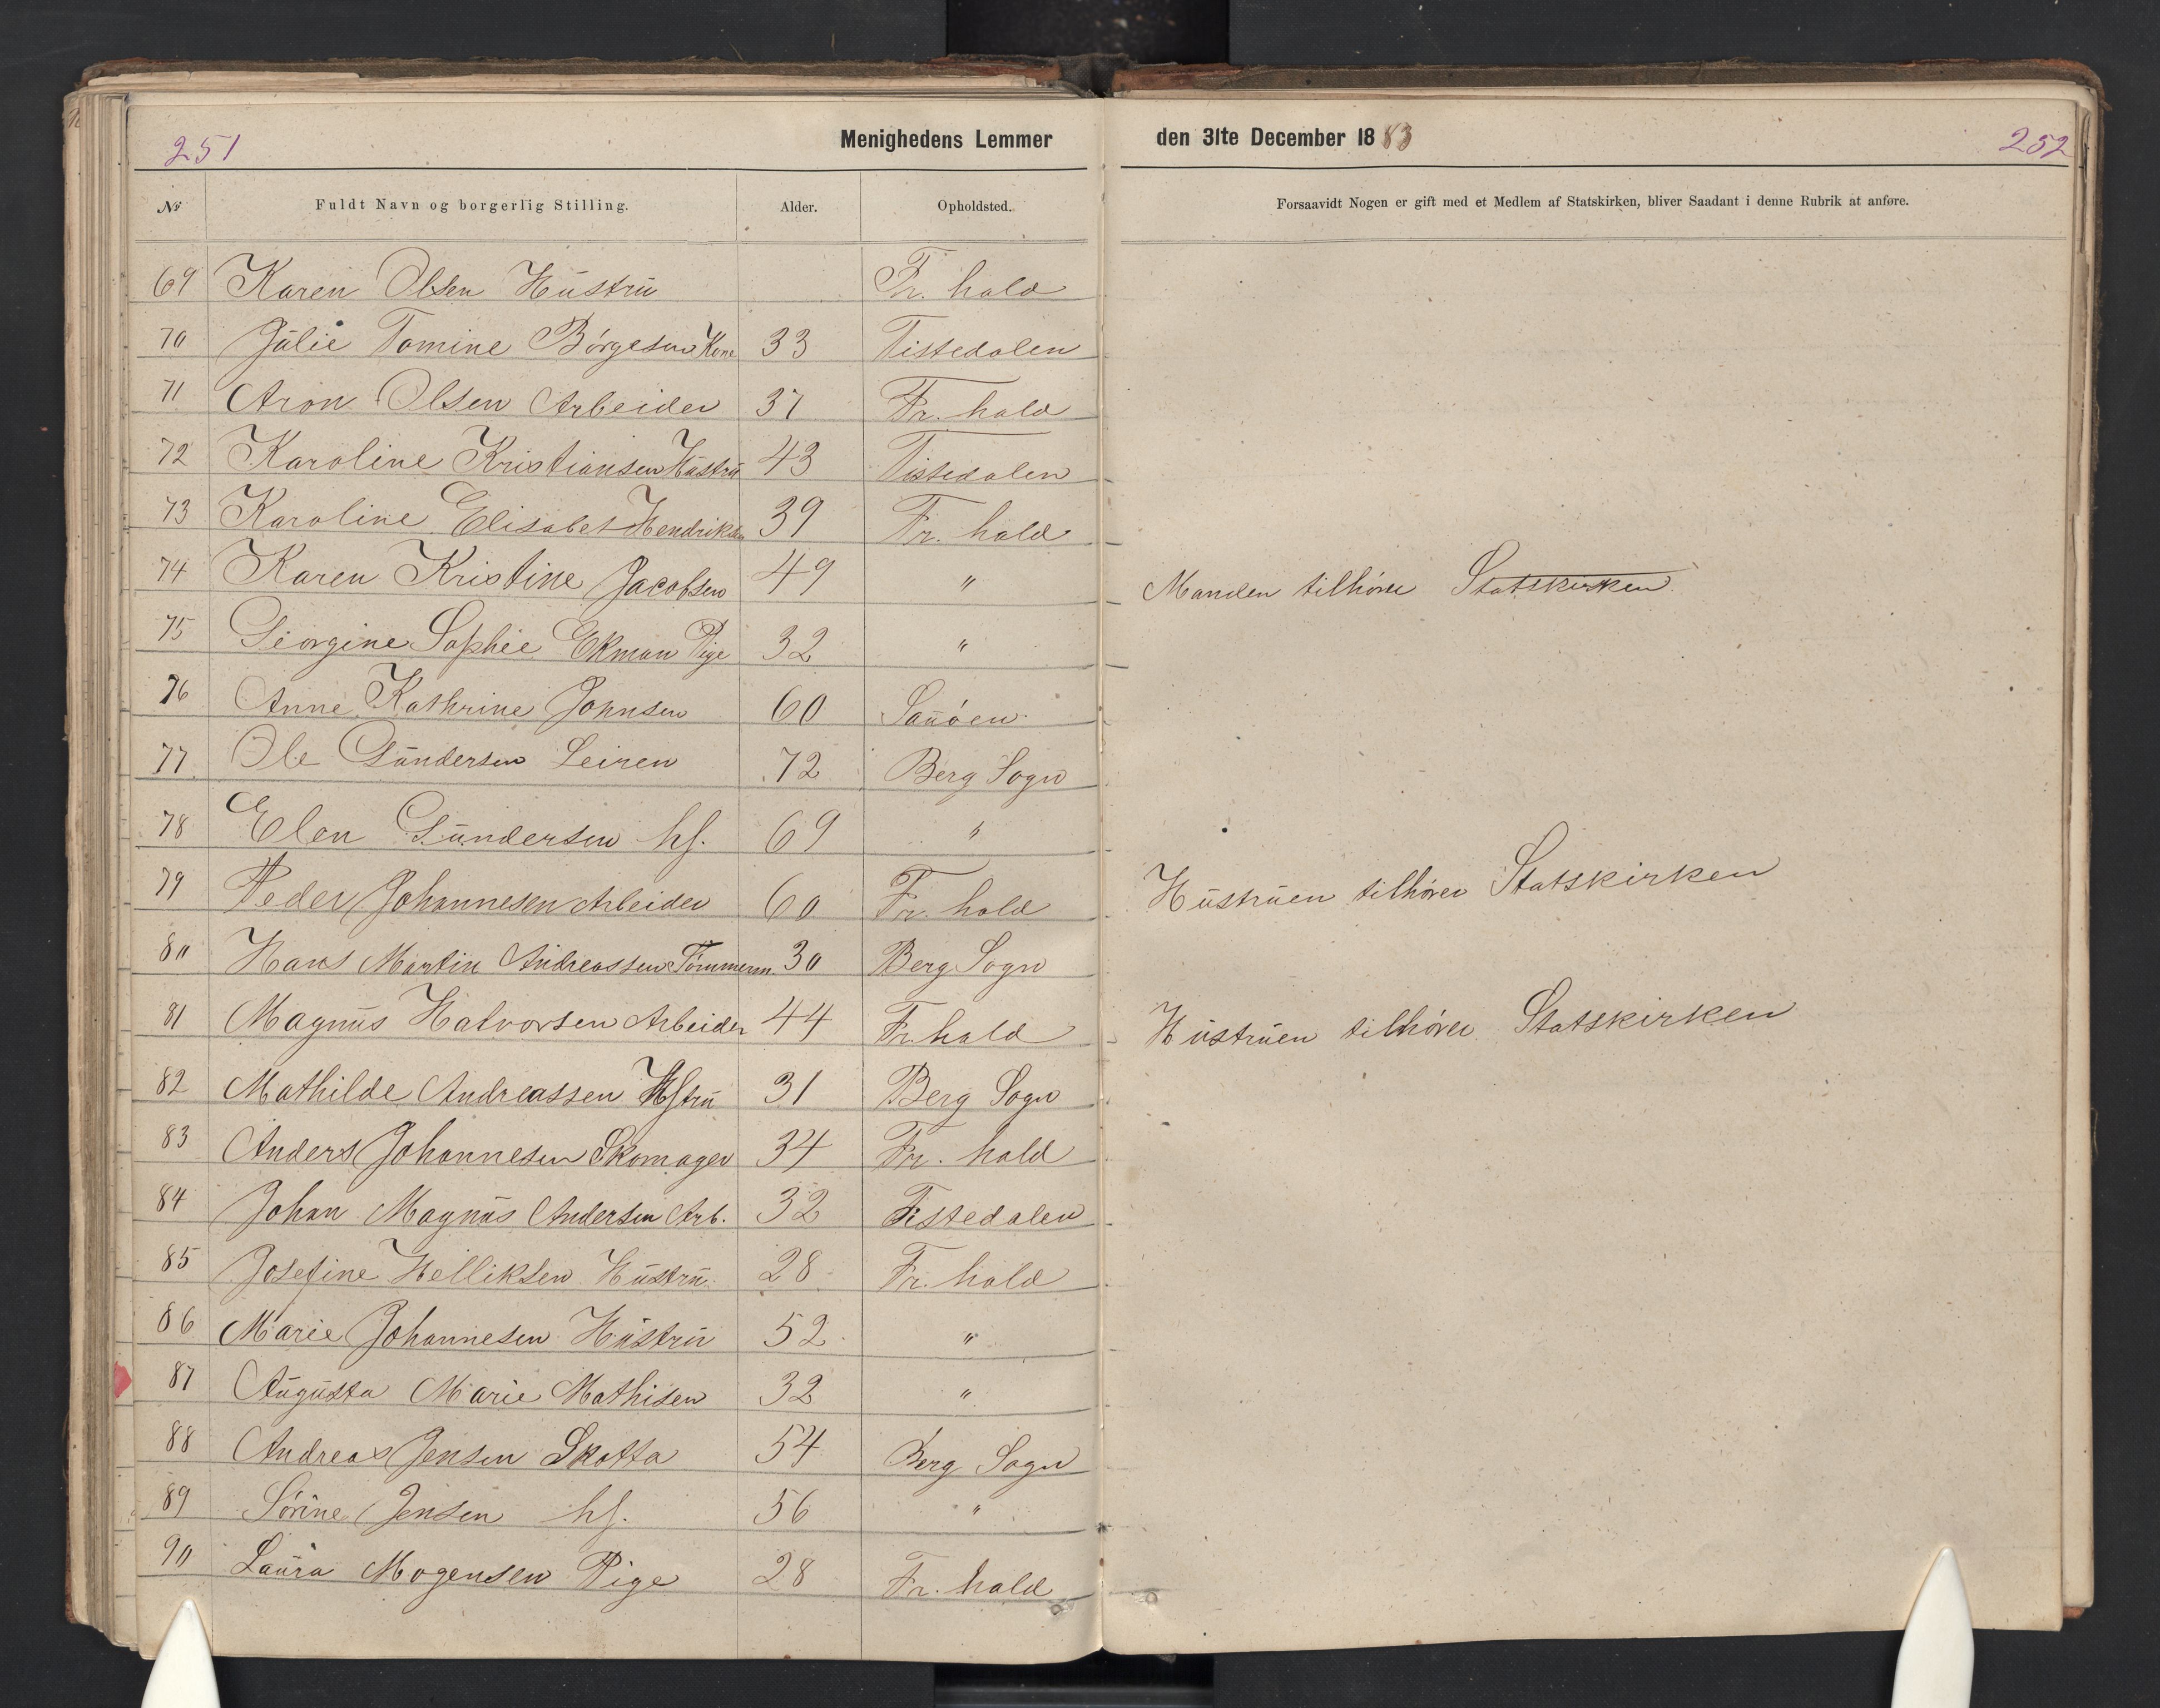 251 Menighedens Lemmer den 31te December 1883 252
No Fuldt Navn og borgerlig Stilling. Alder. Opholdsted. Forsaavidt Nogen er gift med et Medlem af Statskirken, bliver Saadant i denne Rubrik at anføre.
69 Karen Olsen Hustru Fr. hald
70 Julie Tomine Børgesen Kone 33 Tistedalen
71 Aron Olsen Arbeider 37 Fr. hald
72 Karoline Kristiansen Hustru 43 Tistedalen
73 Karoline Elisabet Hendriksen 39 Fr. hald
74 Karen Kristine Jacobsen 49 " Manden tilhører Statskirken
75 Georgine Sophie Ekman Pige 32 "
76 Anne Kathrine Johnsen 60 Sauøen
77 Ole Gundersen Leiren 72 Berg Sogn
78 Elen Gundersen hs. 69 "
79 Peder Johannesen Arbeider 60 Fr. hald Hustruen tilhører Statskirken
80 Hans Martin Andreassen Tømmerm. 30 Berg Sogn
81 Magnus Halvorsen Arbeider 44 Fr. hald Hustruen tilhører Statskirken
82 Mathilde Andreassen Hstru 31 Berg Sogn
83 Anders Johannesen Skomager 34 Fr. hald
84 Johan Magnus Andersen Arb. 32 Tistedalen
85 Josefine Helliksen Hustru 28 Fr. hald
86 Marie Johannesen Hustru 52 "
87 Augusta Marie Mathisen 32 "
88 Andreas Jensen Skotta 54 Berg Sogn
89 Sørine Jensen hs. 56 "
90 Laura Mogensen Pige 28 Fr. hald